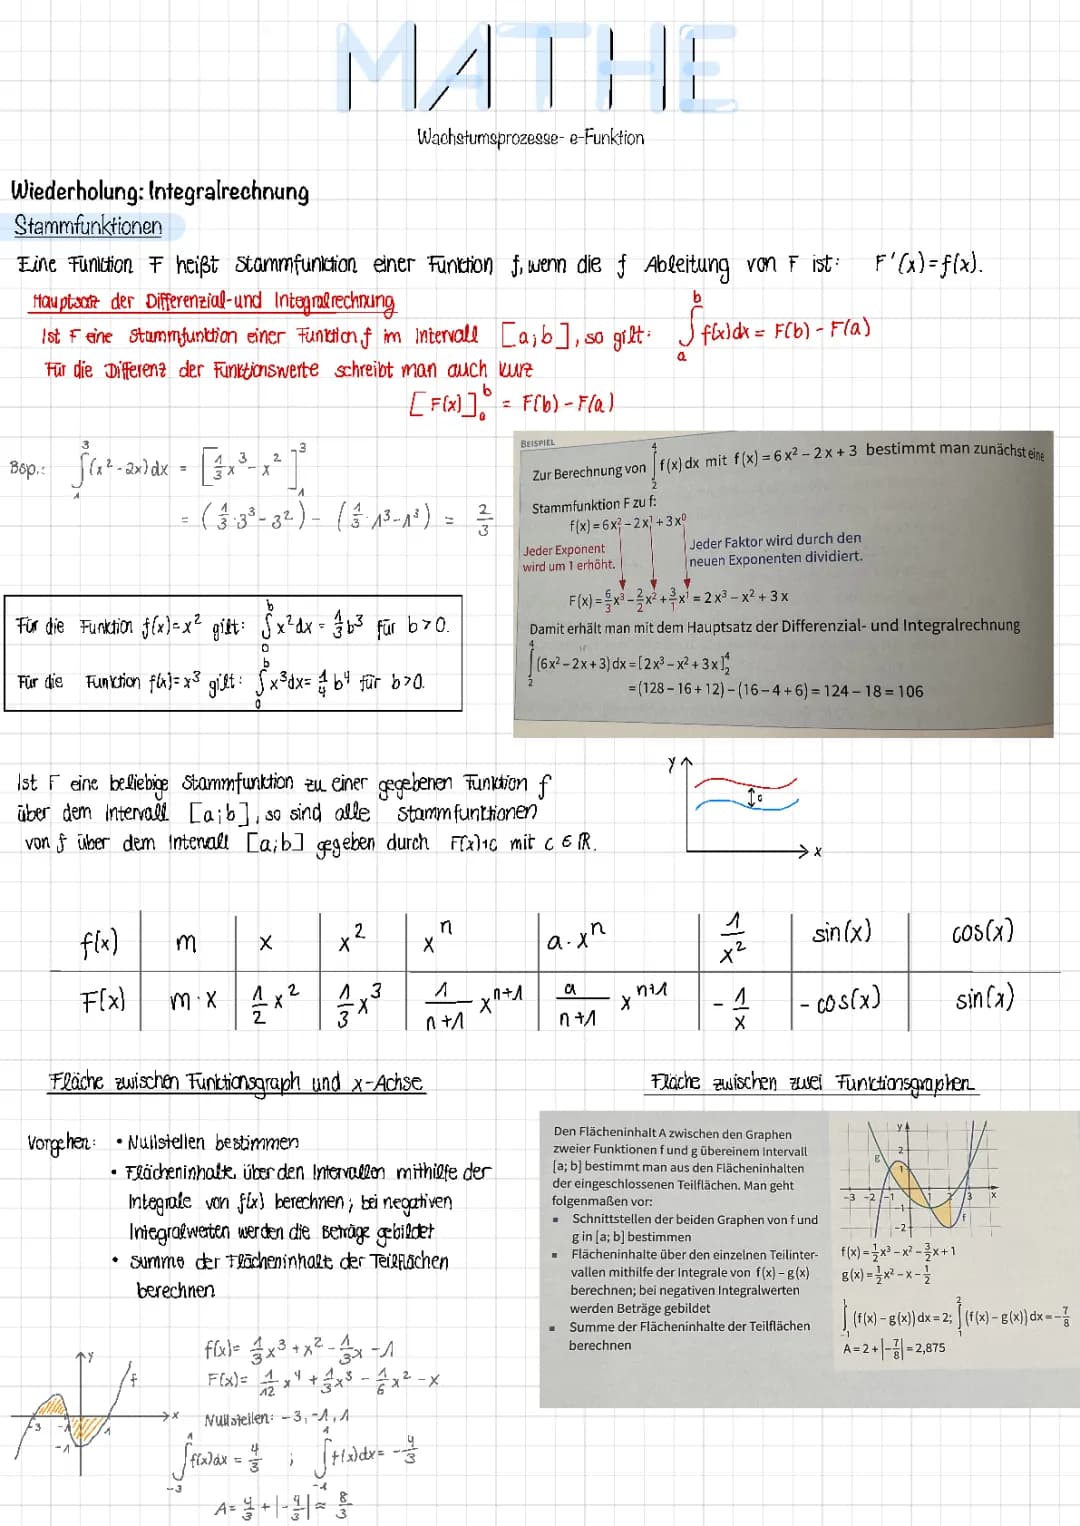 MATHE
Wachstumsprozesse- e-Funktion
Wiederholung: Integralrechnung
Stammfunktionen
Eine Funktion F heißt Stammfunktion einer Funktion f, wenn die f Ableitung von F ist: F'(x)=f(x).
Hauptsatz der Differenzial- und Integralrechnung
Ist F eine Stammfunktion einer Funktion f im Intervall [a;b], so gilt: ∫ₐᵇ f(x)dx = F(b) - F(a)
Für die Differenz der Funktionswerte schreibt man auch kurz
[F(x)]ₐᵇ = F(b) - F(a)
Bsp.: ∫₁³ (x²-2x)dx = [1/3 x³ - x²]₁³
= (1/3·3³-3²) - (1/3·1³-1³) = 2/3
Für die Funktion f(x)=x² gilt: ∫₀ᵇ x²dx = 1/3 b³ für b>0.
Für die Funktion f(x)=x³ gilt: ∫₀ᵇ x³dx = 1/4 b⁴ für b>0.
BEISPIEL
Zur Berechnung von ∫₂⁴ f(x) dx mit f(x) = 6x² – 2x + 3 bestimmt man zunächst eine
Stammfunktion F zu f:
f(x) = 6x² – 2x¹ + 3x⁰
Jeder Exponent
wird um 1 erhöht.
Jeder Faktor wird durch den
neuen Exponenten dividiert.
F(x) = 6/3 x³ – 2/2 x² + 3/1 x¹ = 2x³ – x² + 3x
Damit erhält man mit dem Hauptsatz der Differenzial- und Integralrechnung
∫₂⁴ (6x² – 2x + 3) dx = [2x³ – x² + 3x]₂⁴
= (128 – 16 + 12) – (16 – 4 + 6) = 124 – 18 = 106
Ist F eine beliebige Stammfunktion zu einer gegebenen Funktion f
über dem Intervall [a;b], so sind alle Stammfunktionen
von f über dem Intervall [a;b] gegeben durch F(x)+c mit c ∈ ℝ.
y
c
x
f(x) m x x² xⁿ a·xⁿ 1/x² sin(x) cos(x)
F(x) m·x 1/2 x² 1/3 x³ 1/(n+1) xⁿ⁺¹ a/(n+1) xⁿ⁺¹ -1/x -cos(x) sin(x)
Fläche zwischen Funktionsgraph und x-Achse
Vorgehen: • Nullstellen bestimmen
• Flächeninhalte über den Intervallen mithilfe der
Integrale von f(x) berechnen; bei negativen
Integralwerten werden die Beträge gebildet
• Summe der Flächeninhalte der Teilflächen
berechnen
y
f
x
-3 -1 1
-1
f(x)= 1/3 x³ + x² - 1/3 x - 1
F(x)= 1/12 x⁴ + 1/3 x³ - 1/6 x² - x
Nullstellen: -3, -1, 1
∫₋₃⁻¹ f(x)dx = 4/3 ; ∫₋₁¹ f(x)dx = -4/3
A = 4/3 + |-4/3| ≈ 8/3
Fläche zwischen zwei Funktionsgraphen
Den Flächeninhalt A zwischen den Graphen
zweier Funktionen f und g über einem Intervall
[a; b] bestimmt man aus den Flächeninhalten
der eingeschlossenen Teilflächen. Man geht
folgenmaßen vor:
▪ Schnittstellen der beiden Graphen von f und
g in [a; b] bestimmen
▪ Flächeninhalte über den einzelnen Teilinter-
vallen mithilfe der Integrale von f(x) – g(x)
berechnen; bei negativen Integralwerten
werden Beträge gebildet
▪ Summe der Flächeninhalte der Teilflächen
berechnen
y
g
2
-3 -2 -1 1 2 3 x
-1
-2
f
f(x) = 1/2 x³ – x² – 3/2 x + 1
g(x) = 1/2 x² – x – 1/2
∫₋₁¹ (f(x) – g(x)) dx = 2; ∫₁² (f(x) – g(x)) dx = – 7/8
A = 2 + |– 7/8| = 2,875